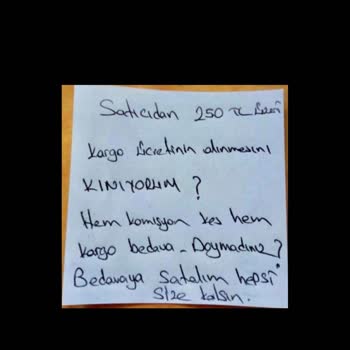 Satıcıdan 250 TL
kargo ücretinin alınmasını
KINIYORUM ?
Hem komisyon kes hem
kargo bedava - Doymadınız ?
Bedavaya satalım hepsi
size kalsın.